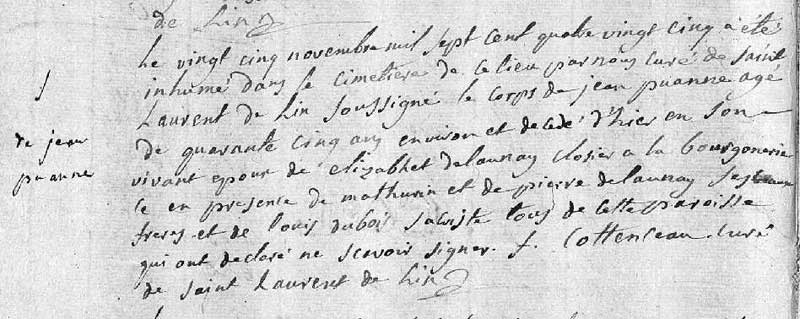 de Lin
Le vingt cinq novembre mil sept cent quatre vingt cinq a été
inhumé dans le cimetiere de ce lieu par nous curé de saint
Laurent de Lin soussigné le corps de jean puanne age
de quarante cinq ans environ et decedé d'hier en son
vivant epoux de elizabhet delaunay closier a la bourgonerie
ce en presence de mathurin et de pierre delaunay ses beaux
freres et de louis dubois sacriste tous de cette paroisse
qui ont declaré ne scavoir signer. f. Cottenceau. curé
de saint Laurent de Lin
S
de jean
puanne